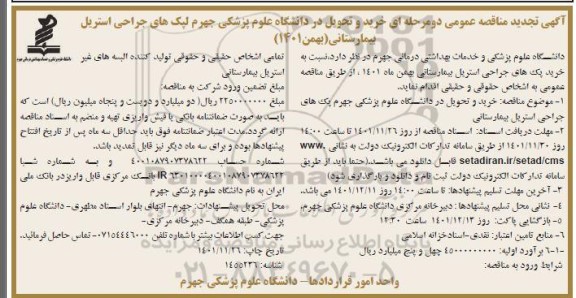 آگهی تجدید مناقصه عمومی دومرحله ای خرید و تحویل در دانشگاه علوم پزشکی جهرم (پک های جراحی استریل
بیمارستانی(بهمن۱۴۰۱)
دانشگاه علوم پزشکی و خدمات بهداشتی درمانی جهرم در نظر دارد،نسبت به
خرید پک های جراحی استریل بیمارستانی بهمن ماه ۱۴۰۱ ، از طریق مناقصه
عمومی به اشخاص حقوقی و حقیقی اقدام نماید.
۱- موضوع مناقصه: خرید و تحویل در دانشگاه علوم پزشکی جهرم پک های
جراحی استریل بیمارستانی
۲- مهلت دریافت اسناد: اسناد مناقصه از روز ۱۴۰۱/۱۱/۲۶ تا ساعت ۱۴:۰۰
روز ۱۴۰۱/۱۱/۳۰ از طریق سامانه تدارکات الکترونیک دولت به نشانی www.
setadiran.ir/setad/cms قابل دانلود می باشد.(حتما باید از طریق
سامانه تدارکات الکترونیک دولت ثبت نام و دانلود و بارگذاری شود)
۳- آخرین مهلت تسلیم پیشنهادها: تا ساعت ۱۴:۰۰ روز ۱۴۰۱/۱۲/۱۱ می باشد.
۴- نشانی محل تسلیم پیشنهادها : دبیرخانه مرکزی دانشگاه علوم پزشکی جهرم،
۵- بازگشایی پاکت: روز ۱۴۰۱/۱۲/۱۳ ساعت ۱۴:۳۰
۶- منابع تامین اعتبار: نقدی-اسنادخزانه اسلامی
۱-۶ برآورد اولیه: ۴۵۰۰۰۰۰۰۰۰۰ چهل و پنج میلیارد ریال
شرایط ورود به مناقصه:
تمامی اشخاص حقیقی و حقوقی تولید کننده البسه های غیر
استریل بیمارستانی
مبلغ تضمین ورود شرکت به مناقصه:
مبلغ ۲۲۵۰۰۰۰۰۰۰ ریال( دو میلیارد و دویست و پنجاه میلیون ریال) است که
بایـد به صورت ضمانتنامه بانکی یا فیش واریزی تهیه و منضم به اسناد مناقصه
ارائه گردد.مدت اعتبار ضمانتنامه فوق باید حداقل سه ماه پس از تاریخ افتتاح
پیشنهادها بوده و برای سه ماه دیگر نیز قابل تمدید باشد.
شماره حساب ۴۰۰۱۰۸۷۹۰۷۳۷۸۶۲۲ و به شماره شبا
بانک مرکزی قابل واریزدر بانک ملی
ایران به نام دانشگاه علوم پزشکی جهرم
محل تحویل پیشنهادات: جهرم- انتهای بلوار استاد مطهری- دانشگاه علوم
پزشکی- طبقه همکف- دبیرخانه مرکزی-
جهت کسب اطلاعات بیشتر باشماره تلفن ۰۷۱۵۴۴۴۶۰۰۰ تماس حاصل فرمائید.
تاریخ چاپ: ۱۴۰۱/۱۱/۲۶
شناسه: ۱۴۵۵۲۳۶
واحد امور قراردادها– دانشگاه علوم پزشکی جهرم
پایگاه اطلاع رسانی مناقصه و مزایده
۰۲۱-۸۸۳۴۹۶۷۰-۵